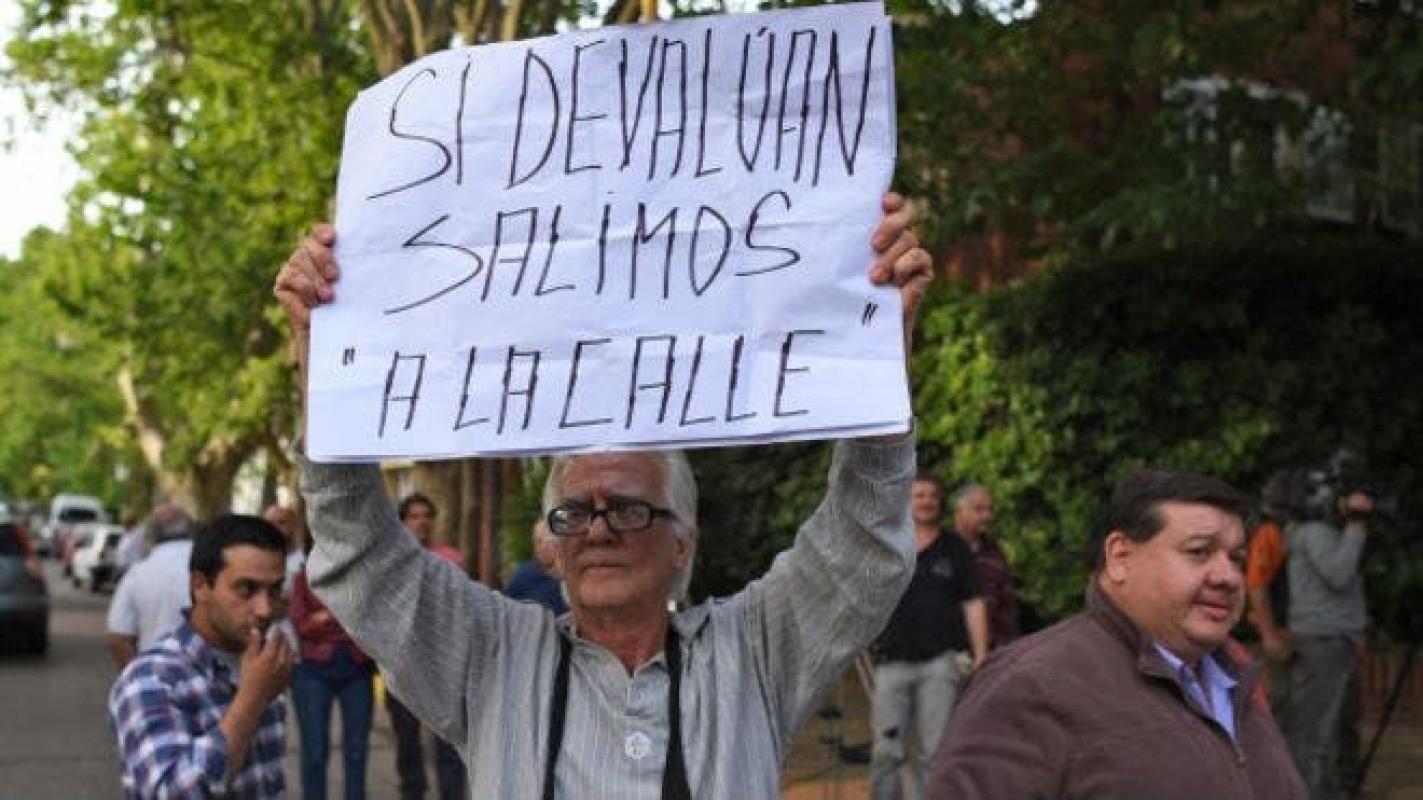 SI DEVALÚAN
SALIMOS
"A LA CALLE"